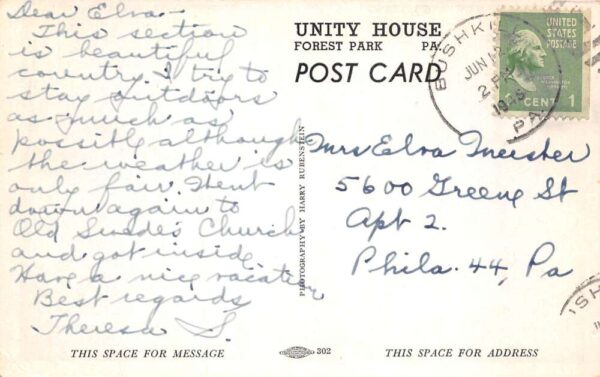 Dear Elva -
This section
is beautiful
country. I try to
stay outdoors
as much as
possible although
the weather is
only fair. Went
down again to
Old Swede's Church
and got inside.
Have a nice vacation
Best regards
Theresa S.
THIS SPACE FOR MESSAGE
UNITY HOUSE
FOREST PARK PA.
POST CARD
PHOTOGRAPHY BY HARRY RUBENSTEIN
302
BUSHK
JUN 12
2 P
1946
PA.
UNITED
STATES
POSTAGE
CENT 1
Mrs Elva Meister
5600 Greene St
Apt 2.
Phila. 44, Pa
THIS SPACE FOR ADDRESS
ISH